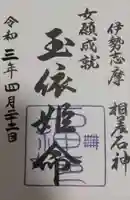 伊勢志摩 相差石神
女願成就
玉依姫命
令和三年四月二十三日